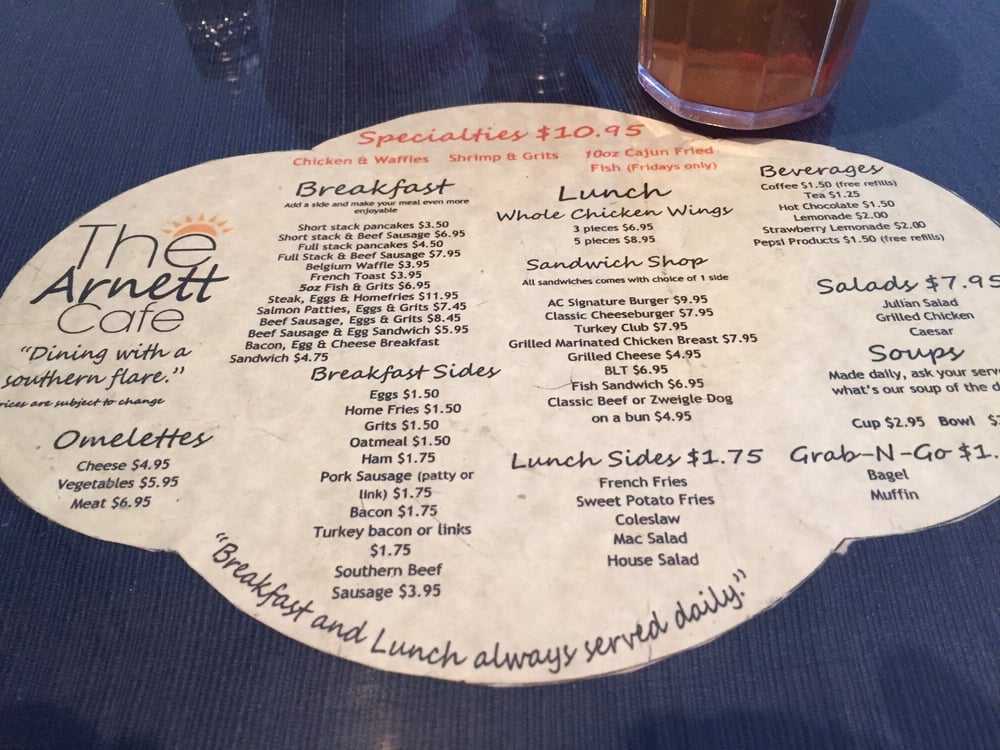 Specialties $10.95
Chicken & Waffles Shrimp & Grits 10oz Cajun Fried
Fish (Fridays only)
The
Arnett
Cafe
"Dining with a
southern flare."
are subject to change
Omelettes
Cheese $4.95
Vegetables $5.95
Meat $6.95
Breakfast
Add a side and make your meal even more
enjoyable
Short stack pancakes $3.50
Short stack & Beef Sausage $6.95
Full stack pancakes $4.50
Full Stack & Beef Sausage $7.95
Belgium Waffle $3.95
French Toast $3.95
5oz Fish & Grits $6.95
Steak, Eggs & Homefries $11.95
Salmon Patties, Eggs & Grits $7.45
Beef Sausage, Eggs & Grits $8.45
Beef Sausage & Egg Sandwich $5.95
Bacon, Egg & Cheese Breakfast
Sandwich $4.75
Breakfast Sides
Eggs $1.50
Home Fries $1.50
Grits $1.50
Oatmeal $1.50
Ham $1.75
Pork Sausage (patty or
link) $1.75
Bacon $1.75
Turkey bacon or links
$1.75
Southern Beef
Sausage $3.95
Lunch
Whole Chicken Wings
3 pieces $6.95
5 pieces $8.95
Sandwich Shop
All sandwiches comes with choice of 1 side
AC Signature Burger $9.95
Classic Cheeseburger $7.95
Turkey Club $7.95
Grilled Marinated Chicken Breast $7.95
Grilled Cheese $4.95
BLT $6.95
Fish Sandwich $6.95
Classic Beef or Zweigle Dog
on a bun $4.95
Lunch Sides $1.75
French Fries
Sweet Potato Fries
Coleslaw
Mac Salad
House Salad
Beverages
Coffee $1.50 (free refills)
Tea $1.25
Hot Chocolate $1.50
Lemonade $2.00
Strawberry Lemonade $2.00
Pepsi Products $1.50 (free refills)
Salads $7.95
Julian Salad
Grilled Chicken
Caesar
Soups
Made daily, ask your
what's our soup of the
Cup $2.95 Bowl
Grab-N-Go
Bagel
Muffin
"Breakfast and Lunch always served daily."